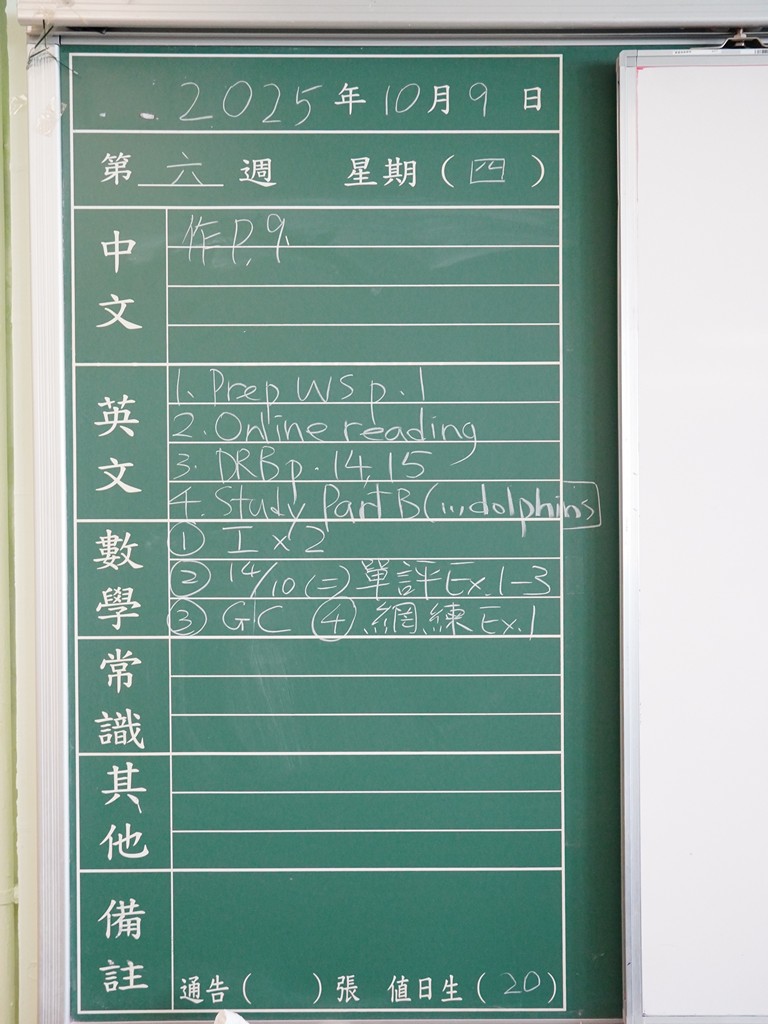 2025年10月9日
第六週 星期(四)
中文
作P.9.
英文
1. Prep WS p.1
2. Online reading
3. DRB p.14,15
4. Study Part B (... dolphins
數學
① I x 2
② 14/10(二)單評Ex.1-3
③ GC ④ 網練Ex.1
常識
其他
備註
通告( )張 值日生(20)